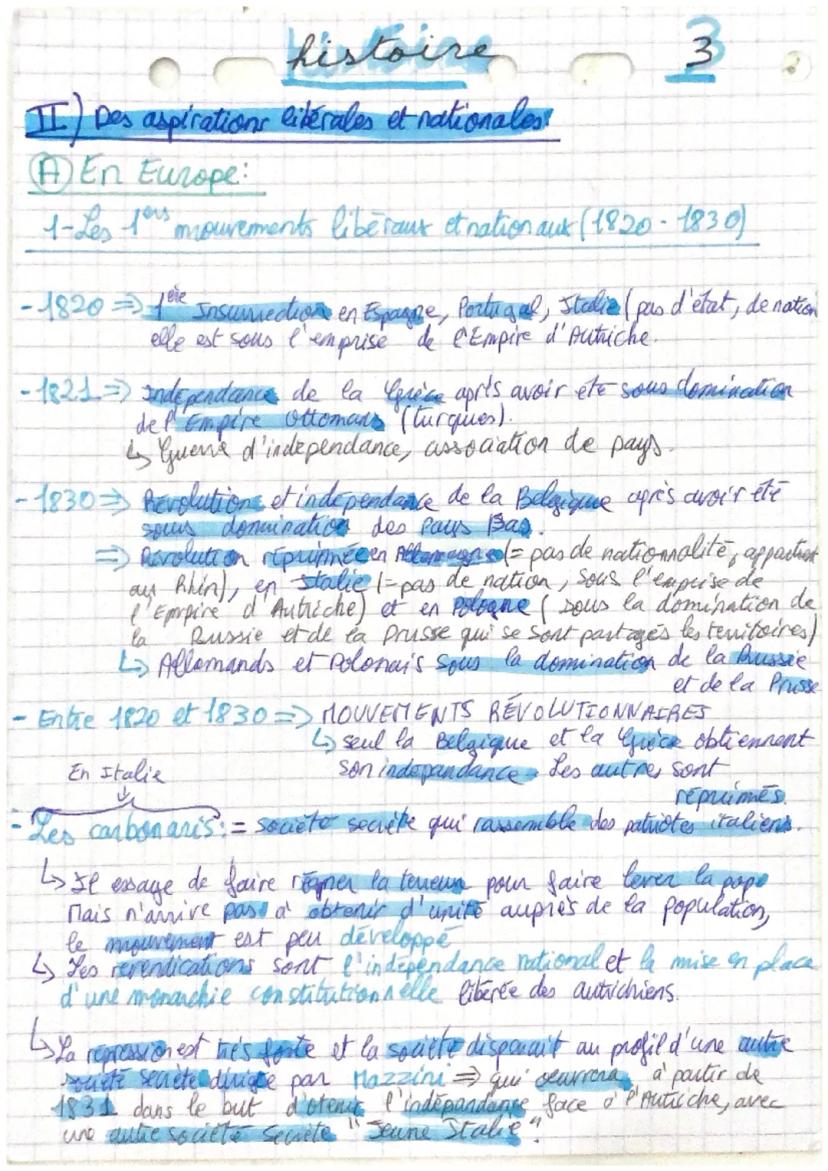 histoire 3
II) Des aspirations libérales et nationales:
A) En Europe:
1-Les 1ers mouvements libéraux et nationaux (1820 - 1830)
- 1820 ⇒ 1ère Insurrection en Espagne, Portugal, Italie (pas d'état, de nation
elle est sous l'emprise de l'Empire d'Autriche.
- 1821 ⇒ Indépendance de la Grèce après avoir été sous domination
de l'Empire Ottomans (turques).
↳ Guerre d'indépendance, association de pays.
- 1830 ⇒ Révolutions et indépendance de la Belgique après avoir été
sous domination des Pays Bas.
⇒ Révolution réprimée en Allemagne (= pas de nationnalité, appartient
au Rhin), en Italie (= pas de nation, sous l'emprise de
l'Empire d'Autriche) et en Pologne (sous la domination de
la Russie et de la Prusse qui se sont partagés les territoires)
↳ Allemands et Polonais sous la domination de la Russie
et de la Prusse
- Entre 1820 et 1830 ⇒ MOUVEMENTS RÉVOLUTIONNAIRES
↳ seul la Belgique et la Grèce obtiennent
son indépendance. Les autres sont
réprimés.
En Italie
↓
- Les carbonaris: = société secrète qui rassemble des patriotes italiens.
↳ Il essage de faire régner la terreur pour faire lever la pop°
Mais n'arrive pas à obtenir d'unité auprès de la population,
le mouvement est peu développé
↳ Les revendications sont l'indépendance national et la mise en place
d'une monarchie constitutionnelle libérée des autrichiens.
↳ La répression est très forte et la société disparait au profil d'une autre
société secrète dirigée par Mazzini ⇒ qui oeuvrera à partir de
1831 dans le but d'otenir l'indépendance face à l'Autriche, avec
une autre société secrète "Jeune Italie".